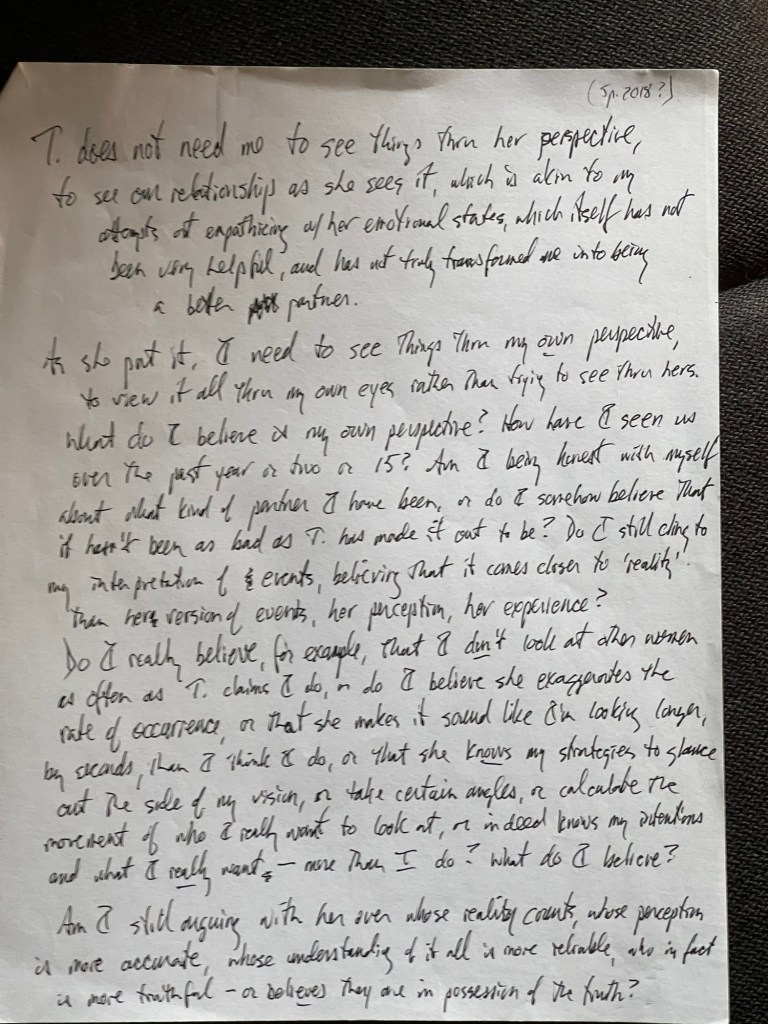 (Sp. 2018?)
T. does not need me to see things thru her perspective,
to see our relationship as she sees it, which is akin to my
attempts at empathizing w/ her emotional states, which itself has not
been very helpful, and has not truly transformed me into being
a better partner.
As she put it, I need to see things thru my own perspective,
to view it all thru my own eyes rather than trying to see thru hers.
What do I believe is my own perspective? How have I seen us
over the past year or two or 15? Am I being honest with myself
about what kind of partner I have been, or do I somehow believe that
it hasn't been as bad as T. has made it out to be? Do I still cling to
my interpretation of events, believing that it comes closer to 'reality'
than her version of events, her perception, her experience?
Do I really believe, for example, that I don't look at other women
as often as T. claims I do, or do I believe she exaggerates the
rate of occurrence, or that she makes it sound like I'm looking longer,
by seconds, than I think I do, or that she knows my strategies to glance
out the side of my vision, or take certain angles, or calculate the
movement of who I really want to look at, or indeed knows my intentions
and what I really want — more than I do? What do I believe?
Am I still arguing with her over whose reality counts, whose perception
is more accurate, whose understanding of it all is more reliable, who in fact
is more truthful – or believes they are in possession of the truth?